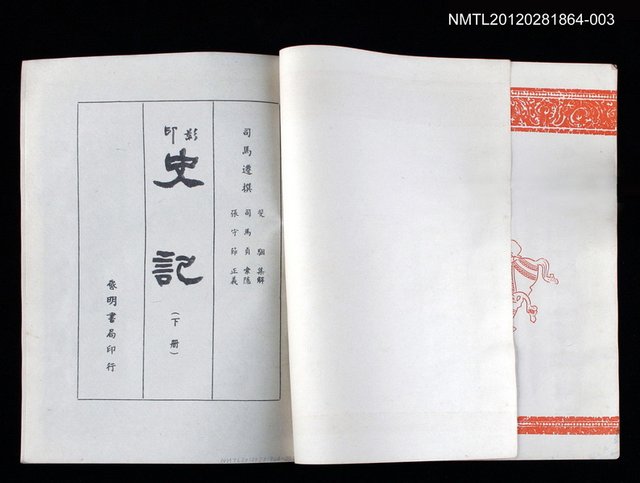 NMTL20120281864-003
司馬遷撰
裴駰集解
司馬貞索隱
張守節正義
影印
史記
（下册）
啓明書局印行